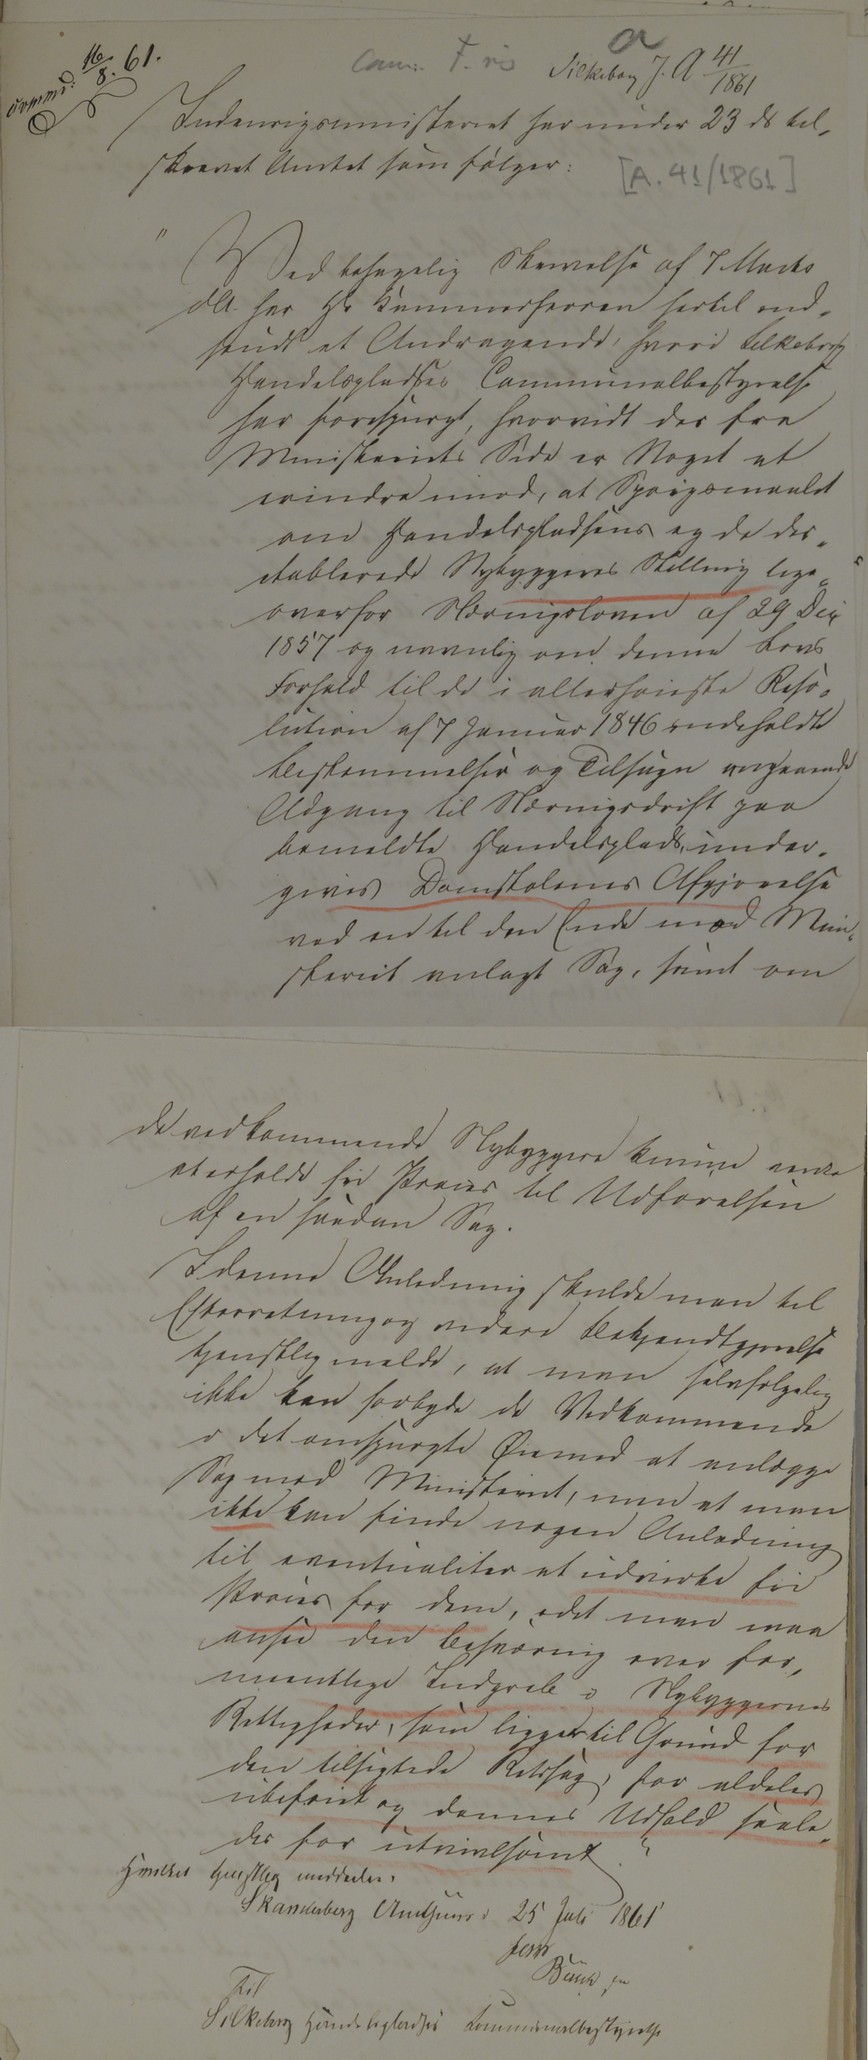 16/8. 61.
Cam: F. vis
a
Silkeborg J. A 41/1861
Indenrigsministeriet har under 23 ds til-
skrevet Amtet som følger:
[A. 41/1861]
"Ved behagelig Skrivelse af 7 Marts
d.A. har Hr Kammerherren hertil ind-
sendt et Andragende, hvori Silkeborg
Handelspladses Communalbestyrelse
har forespurgt, hvorvidt der fra
Ministeriets Side er Noget at
erindre imod, at Spørgsmaalet
om Handelspladsens og de der
etablerede Nybyggeres Stilling lige-
overfor Næringsloven af 29 Dec
1857 og navnlig om denne Lovs
Forhold til de i allerhøieste Reso-
lution af 7 Januar 1846 indeholdte
Bestemmelser og Tilsagn angaaende
Adgang til Næringsdrift paa
bemeldte Handelsplads, under-
gives Domstolenes Afgjørelse
ved en til den Ende mod Mini-
steriet anlagt Sag, samt om
de vedkommende Nybyggere kunne vente
at erholde fri Proces til Udførelsen
af en saadan Sag.
I denne Anledning skulde man til
Efterretning og videre Bekjendtgjørelse
tjenstlig melde, at man selvfølgelig
ikke kan forbyde de Vedkommende
i det omspurgte Øiemed at anlægge
Sag mod Ministeriet, men at man
ikke kan finde nogen Anledning
til eventualiter at udvirke fri
Proces for dem, idet man maa
ansee den Besværing over for-
mentlige Indgreb i Nybyggernes
Rettigheder, som ligger til Grund for
den tilsigtede Retssag, for aldeles
ubeføiet og dennes Udfald saale-
des for utvivlsomt."
Hvilket tjenstlig meddeles.
Skanderborg Amthuus d 25 Juli 1861
Bünk
Til
Silkeborg Handelsplads's Communalbestyrelse